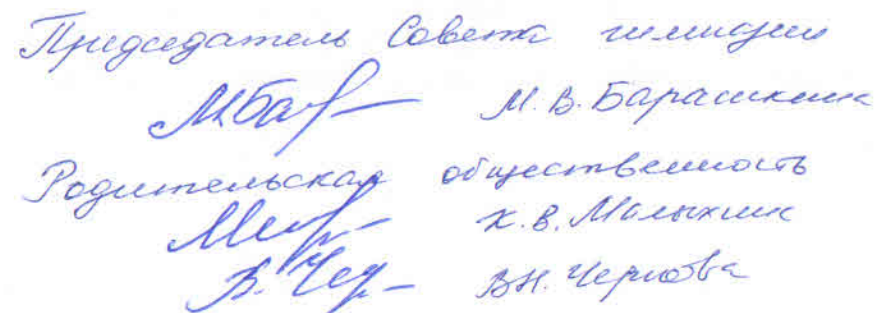 Председатель Совета гимназии
М. В. Барашкина
Родительская общественность
К. В. Малыхина
В. Чер В.Н. Чернова